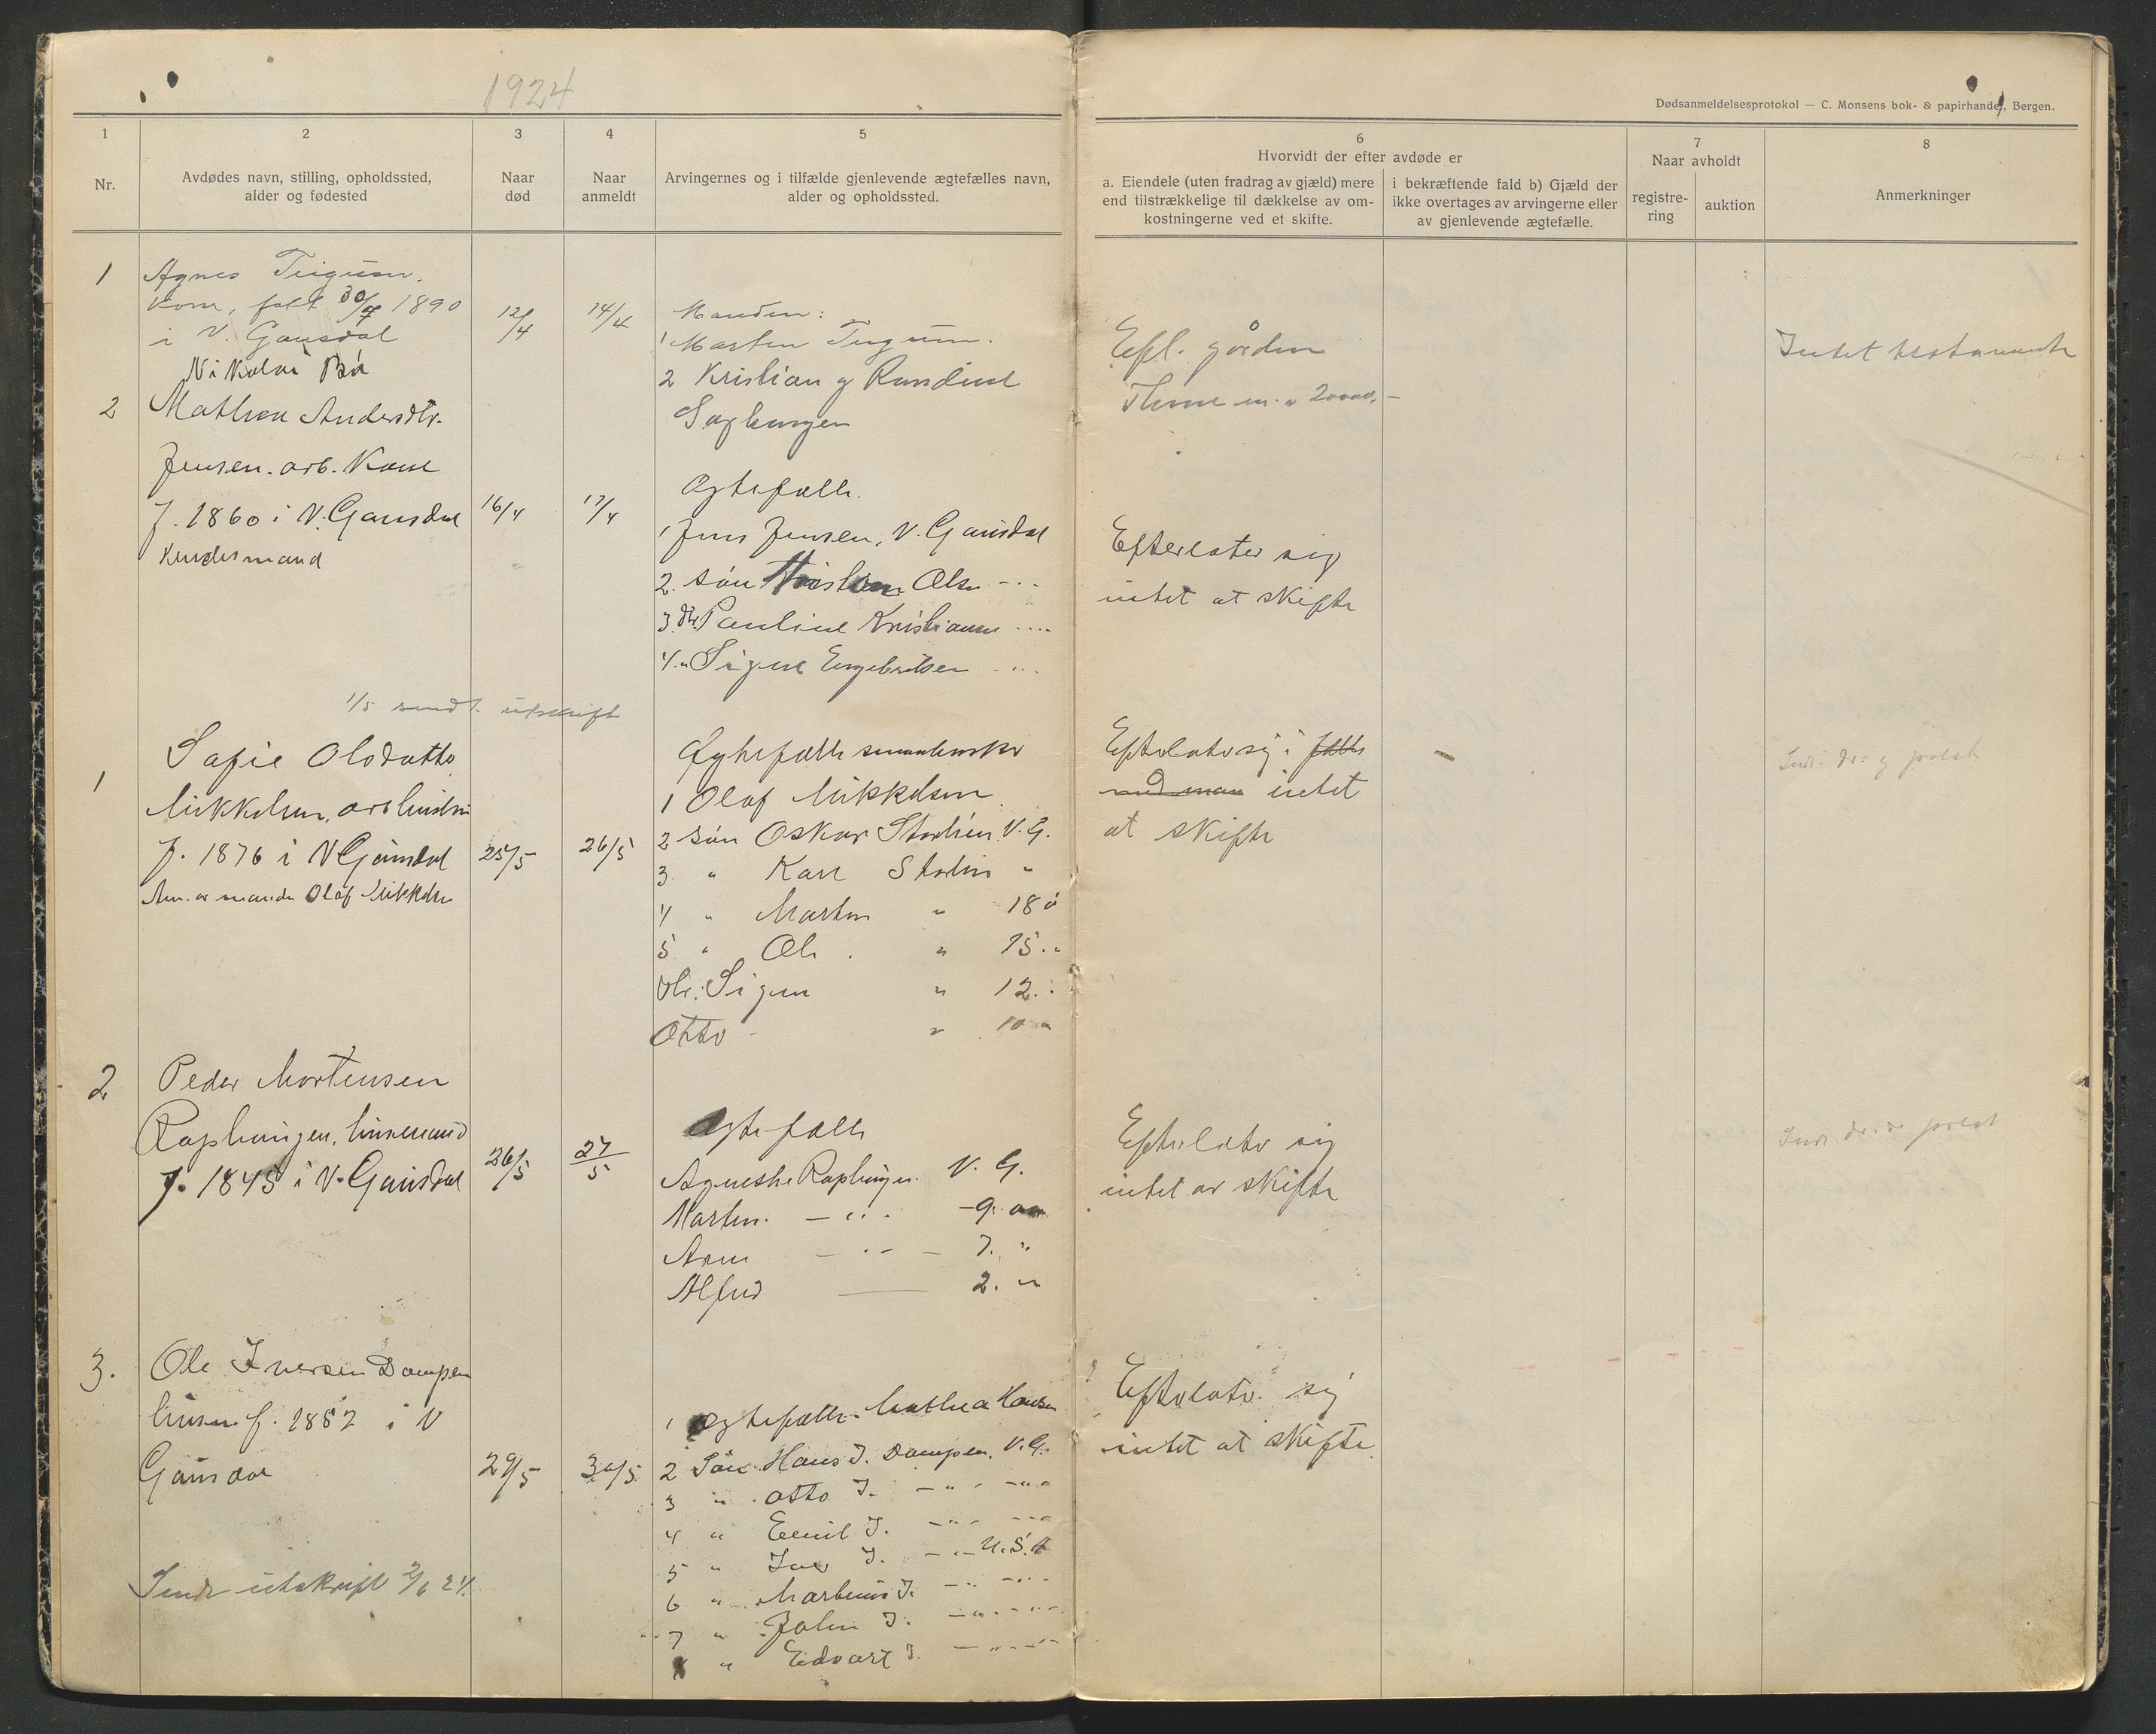 1924
Dødsanmeldelsesprotokol — C. Monsens bok- & papirhandel, Bergen.
1
2
3
4
5
6
7
8
Nr.
Avdødes navn, stilling, opholdssted,
alder og fødested
Naar
død
Naar
anmeldt
Arvingernes og i tilfælde gjenlevende ægtefælles navn,
alder og opholdssted.
Hvorvidt der efter avdøde er
a. Eiendele (uten fradrag av gjæld) mere
end tilstrækkelige til dækkelse av om-
kostningerne ved et skifte.
i bekræftende fald b) Gjæld der
ikke overtages av arvingerne eller
av gjenlevende ægtefælle.
Naar avholdt
registre-
ring
auktion
Anmerkninger
1
Agnes
Kone, født 30/7 1890
i V. Gausdal
Nikolai Bø
12/4
14/4
Manden:
1 Martin
2 Kristian g
Efl. gården
m. a 20000,-
Intet testamente
2
Mathea Andersdtr.
Jensen. arb. Kone
f. 1860 i V. Gausdal
Kendesmand
16/4
17/4
Ægtefælle.
1 Jens Jensen, V. Gausdal
2. søn Olsen - " -
3. dtr. Pauline Kristiansen - " -
4. " Signe Engebretsen - " -
Efterlater sig
intet at skifte
1/5 sendt utskrift
1
Safie Olsdatter
Mikkelsen,
f. 1876 i V Gausdal
Anm. av manden Olaf Mikkelsen
25/5
26/5
Ægtefælle
1 Olaf Mikkelsen
2 søn Oskar Storlien V. G.
3 " Karl Storlien "
4 " Martin " 18 å
5 " Ole " 15. "
dtr. Signe " 12. "
Otto " 10 "
Efterlater sig i
intet
at skifte
2
Peder Mortensen
f. 1845 i V. Gausdal
26/5
27/5
Ægtefælle
V. G.
Martin. - " - 9. aar
Arne - " - 7. "
Alfred — 2. "
Efterlater sig
intet av skifte
3.
Ole Iversen Dampen
f. 1852 i V
Gausdal
29/5
30/5
1 Ægtefælle. Mathea Hansen
2 Søn Hans I. Dampen. V. G.
3 " Otto I. - " - - " -
4 " Emil I. - " - - " -
5 " Iver I. - " - U.S.A
6 " Martinus I. - " - - " -
7 " John I. - " - - " -
8 " Edvart I. - " - - " -
Efterlater sig
intet at skifte
Sendt utskrift 2/6 24.